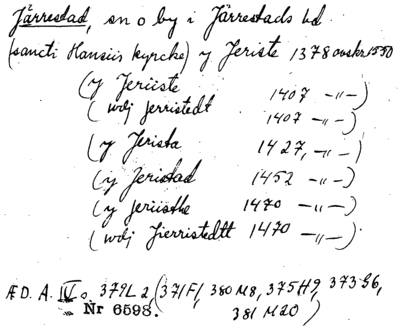 Järrestad, sn o by i Järrestads hd
(sancti Hansiis kyrcke) y Jeriste 1378 avskr 1550
(y Jeriiste 1407 -"-)
(wdj Jerristedt 1407 -"-)
(y Jerista 1427, -"-)
(y Jeristad 1452 -"-)
(y Jeriisthe 1470 -"-)
(wdj Jierristedtt 1470 -"-)
ÆD. A. IV o, 379L2 (371F1, 380M8, 375H9, 373G6,
Nr 6598. 381M20)